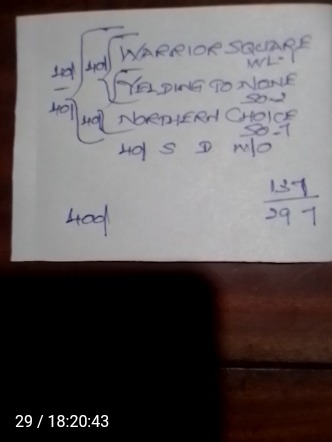 40/ 40/ WARRIOR SQUARE
WL-1
YELDING TO NONE
SO-2
40/ 40/ NORTHERN CHOICE
SO-7
40/ S D W/O
137
297
400/
29 / 18:20:43